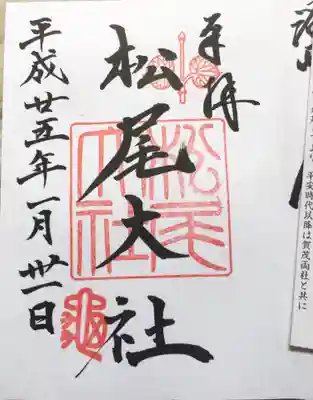 奉拝
松尾大社
平成廿五年一月卅一日
松尾大社
平安時代以降は賀茂両社と共に